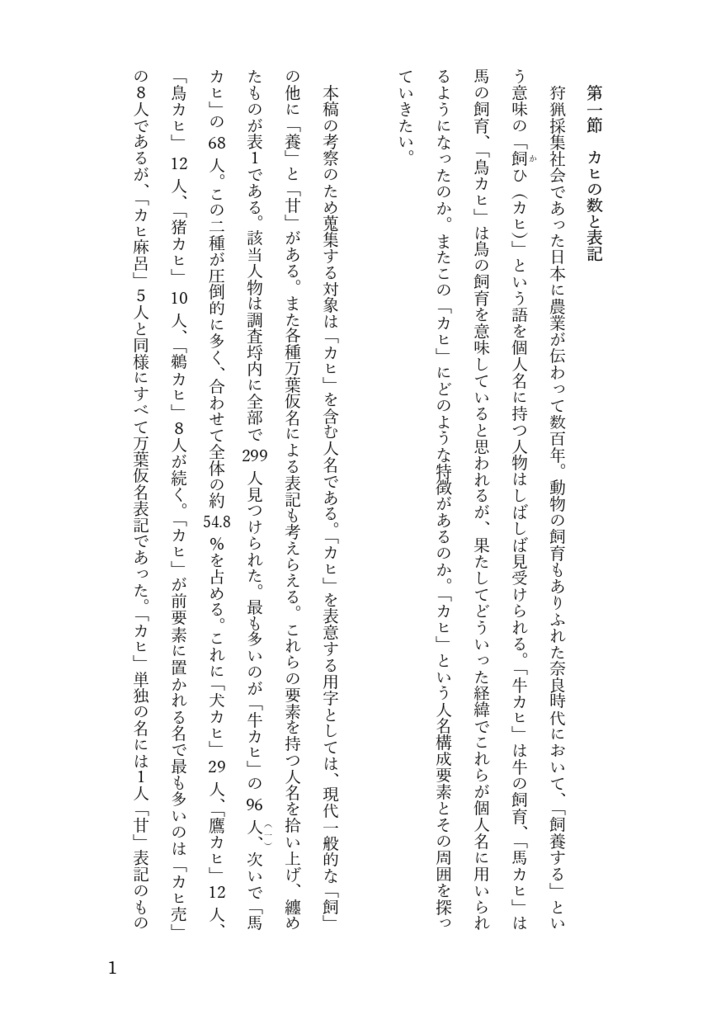 第一節　カヒの数と表記
狩猟採集社会であった日本に農業が伝わって数百年。動物の飼育もありふれた奈良時代において、「飼養する」とい
う意味の「飼ひ（カヒ）」という語を個人名に持つ人物はしばしば見受けられる。「牛カヒ」は牛の飼育、「馬カヒ」は
か
馬の飼育、「鳥カヒ」は鳥の飼育を意味していると思われるが、果たしてどういった経緯でこれらが個人名に用いられ
るようになったのか。またこの「カヒ」にどのような特徴があるのか。「カヒ」という人名構成要素とその周囲を探っ
ていきたい。
本稿の考察のため蒐集する対象は「カヒ」を含む人名である。「カヒ」を表意する用字としては、現代一般的な「飼」
の他に「養」と「甘」がある。また各種万葉仮名による表記も考えらえる。これらの要素を持つ人名を拾い上げ、纏め
たものが表1である。該当人物は調査埒内に全部で299人見つけられた。最も多いのが「牛カヒ」の96人、次いで「馬
（一）
カヒ」の68人。この二種が圧倒的に多く、合わせて全体の約54.8%を占める。これに「犬カヒ」29人、「鷹カヒ」12人、
「鳥カヒ」12人、「猪カヒ」10人、「鵜カヒ」8人が続く。「カヒ」が前要素に置かれる名で最も多いのは「カヒ売」
の8人であるが、「カヒ麻呂」5人と同様にすべて万葉仮名表記であった。「カヒ」単独の名には1人「甘」表記のもの
1